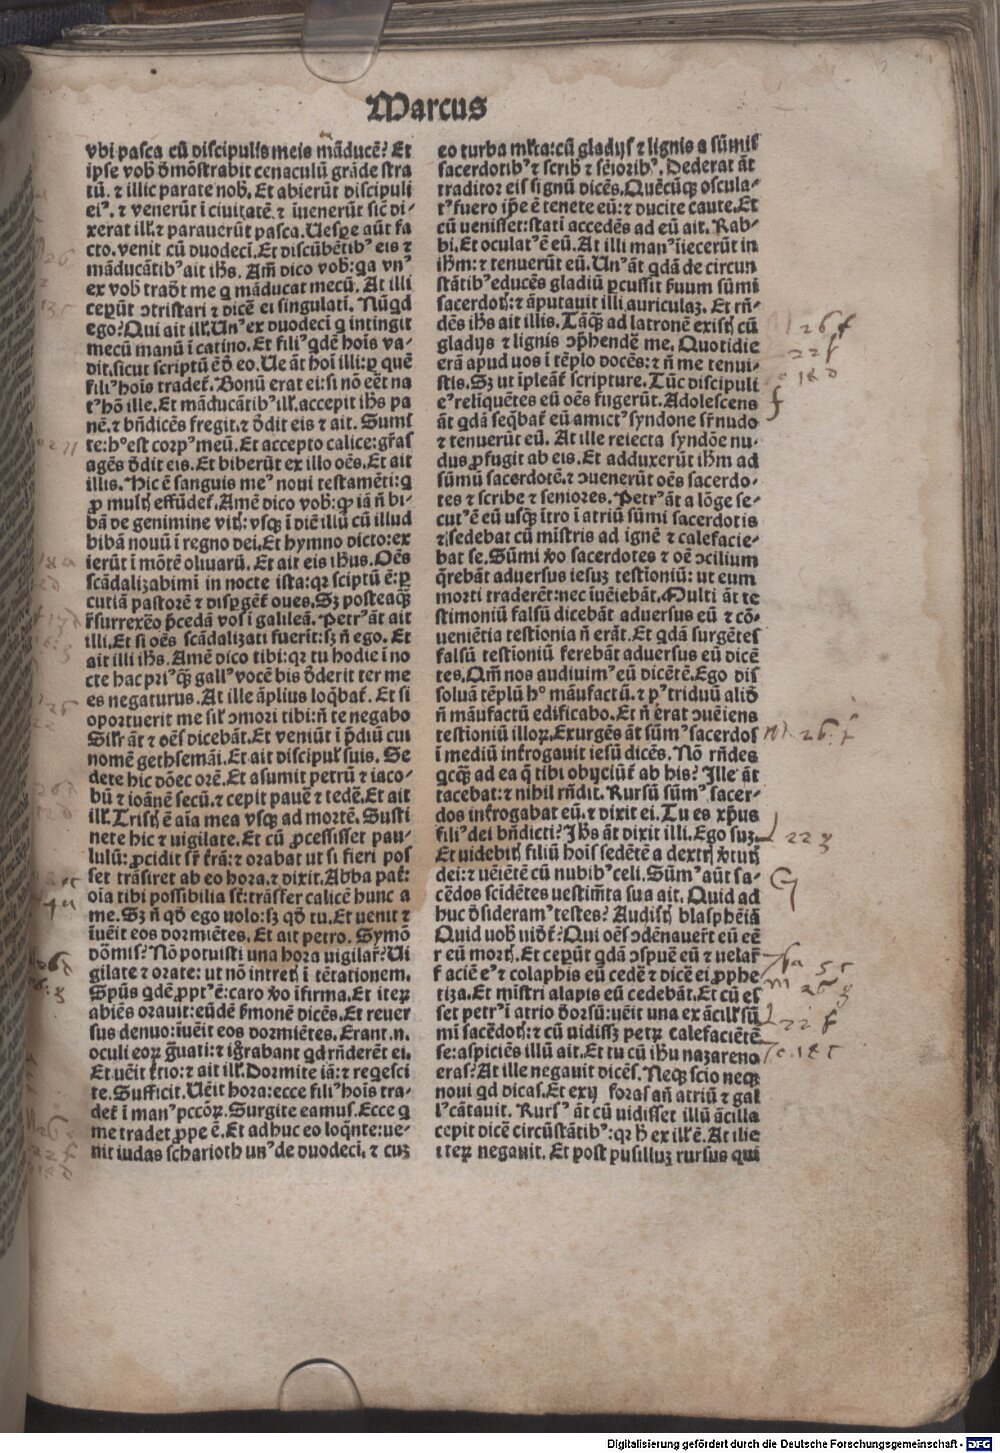 Marcus
vbi pasca cū discipulis meis māducē? Et
ipse vob̄ dmōstrabit cenaculū grāde stra
tū. ⁊ illic parate nob̄. Et abierūt discipuli
eiꝰ. ⁊ venerūt ī ciuitatē. ⁊ īuenerūt sic̄ di-
xerat ill'. ⁊ parauerūt pasca. Uesꝑe aūt fa
cto. venit cū duodecī. Et discūbētibꝰ eis ⁊
māducātibꝰ ait ih̄s. Am̄ dico vob̄: qa vnꝰ
ex vob̄ tradt̄ me q māducat mecū. At illi
ceperūt ↄtristari ⁊ dicē ei singulatī. Nūqd
ego? Qui ait ill'. Unꝰ ex duodecī q intingit
mecū manū ī catino. Et filiꝰ qdē hoīs va-
dit. sicut scriptū ē d̄ eo. Ue āt hoī illi: ꝑ quē
filiꝰ hoīs tradet̄. Bonū erat ei: si nō eēt na
tꝰ hō ille. Et māducātibꝰ ill'. accepit ih̄s pa
nē. ⁊ bn̄dicēs fregit. ⁊ ddit eis ⁊ ait. Sumi
te: hᵒ est corpꝰ meū. Et accepto calice: gr̄as
agēs ddit eis. Et biberūt ex illo oēs. Et ait
illis. Hic ē sanguis meꝰ noui testamēti: q
ꝓ multꝭ effūdet̄. Amē dico vob̄: qꝛ iā n̄ bi-
bā de genimine vitꝭ: vsqꝫ ī diē illū cū illud
bibā nouū ī regno dei. Et hymno dicto: ex
ierūt ī mōtē oliuarū. Et ait eis ih̄us. Oēs
scādalizabimī in nocte ista: qꝛ sciptū ē: ꝑ
cutiā pastorē ⁊ disꝑgēt̄ oues. Sꝫ posteaqꝫ
r̄surrexeo p̄cedā vos ī galileā. Petrꝰ āt ait
illi. Et si oēs scādalizati fuerīt: sꝫ n̄ ego. Et
ait illi ih̄s. Amē dico tibi: qꝛ tu hodie ī no
cte hac priꝰ qꝫ gallꝰ vocē bis dderit ter me
es negaturus. At ille āplius loqbat̄. Et si
oportuerit me sil' ↄmori tibi: n̄ te negabo
Sil'r āt ⁊ oēs dicebāt. Et veniūt ī p̄diū cui
nomē gethsemāi. Et ait discipul' suis. Se
dete hic dōec orē. Et asumit petrū ⁊ iaco-
bū ⁊ ioānē secū. ⁊ cepit pauē ⁊ tedē. Et ait
ill'. Tristꝭ ē aīa mea vsqꝫ ad mortē. Susti
nete hic ⁊ uigilate. Et cū ꝓcessisset pau-
lulū: ꝓcidit sr̄ t̄rā: ⁊ orabat ut si fieri pos
set trāsiret ab eo hora. ⁊ dixit. Abba pat̄:
oīa tibi possibilia st̄: trāsfer calicē hunc a
me. Sꝫ n̄ qd ego uolo: sꝫ qd tu. Et uenit ⁊
īuēit eos dormiētes. Et ait petro. Symō
dōmis? Nō potuisti una hora uigilar̄? Ui
gilate ⁊ orate: ut nō intretꝭ ī tētationem.
Sp̄us qdē ꝓptꝰ ē: caro ꝟo īfirma. Et iteꝝ
abiēs orauit: eūdē s̄monē dicēs. Et reuer
sus denuo: īuēit eos dormiētes. Erant .n.
oculi eoꝝ gͣuati: ⁊ igͫrabant qd rn̄derēt ei.
Et uēit t̄tio: ⁊ ait ill'. Dormite iā: ⁊ reqesci
te. Sufficit. Uēit hora: ecce filiꝰ hoīs tra-
det̄ ī manꝰ pccōꝝ. Surgite eamus. Ecce q
me tradet ꝓpe ē. Et adhuc eo loqnte: ue-
nit iudas scharioth unꝰ de duodecī. ⁊ cuꝫ
eo turba ml'ta: cū gladijs ⁊ lignis a sūmis
sacerdotibꝰ ⁊ scrib̄ ⁊ sēioribꝰ. Dederat āt
traditor eis signū dicēs. Quēcūqꝫ oscula-
tꝰ fuero ip̄e ē tenete eū: ⁊ ducite caute. Et
cū uenisset: statī accedēs ad eū ait. Rab-
bi. Et oculatꝰ ē eū. At illi manꝰ iiecerūt in
ih̄m: ⁊ tenuerūt eū. Unꝰ āt qdā de circun
stātibꝰ educēs gladiū ꝑcussit s̄uum sūmi
sacerdotꝭ: ⁊ āputauit illi auriculaꝫ. Et rn̄-
dēs ih̄s ait illis. Tāqꝫ ad latronē existꝭ cū
gladijs ⁊ lignis ↄp̄hendē me. Quotidie
erā apud uos ī tēplo docēs: ⁊ n̄ me tenui-
stis. Sꝫ ut īpleāt̄ scripture. Tūc discipuli
eꝰ reliquētes eū oēs fugerūt. Adolescens
āt qdā seqbat̄ eū amictꝰ syndone sr̄ nudo
⁊ tenuerūt eū. At ille reiecta syndōe nu-
dus ꝓfugit ab eis. Et adduxerūt ih̄m ad
sūmū sacerdotē. ⁊ ↄuenerūt oēs sacerdo-
tes ⁊ scribe ⁊ seniores. Petrꝰ āt a lōge se-
cutꝰ ē eū usqꝫ ītro ī atriū sūmi sacerdotis
⁊ sedebat cū mīstris ad ignē ⁊ calefacie-
bat se. Sūmi ꝟo sacerdotes ⁊ oē ↄcilium
qrebāt aduersus iesuꝫ testioniū: ut eum
morti traderēt: nec īuēiebāt. Multi āt te
stimoniū falsū dicebāt aduersus eū ⁊ cō-
ueniētia testīonia n̄ erāt. Et qdā surgētes
falsū testioniū ferebāt aduersus eū dicē
tes. Qm̄ nos audiuimꝰ eū dicētē. Ego dis
soluā tēplū hᵒ māufactū. ⁊ pꝰ triduū aliō
n̄ māufactū edificabo. Et n̄ erat ↄuēiens
testioniū illoꝝ. Exurgēs āt sūmꝰ sacerdos
ī mediū int̄rogauit iesū dicēs. Nō rn̄des
qcqꝫ ad ea q̄ tibi obijciūt̄ ab his? Ille āt
tacebat: ⁊ nihil rn̄dit. Rursū sūmꝰ sacer-
dos int̄rogabat eū. ⁊ dixit ei. Tu es xp̄us
filiꝰ dei bn̄dicti? Ih̄s āt dixit illi. Ego suꝫ
Et uidebitꝭ filiū hoīs sedētē a dextrꝭ ꝟtutꝭ
dei: ⁊ uēiētē cū nubibꝰ celi. Sūmꝰ aūt sa-
cēdos scīdētes uestimt̄a sua ait. Quid ad
huc dsideramꝰ testes? Audistꝭ blasphēiā
Quid uob̄ uidet̄? Qui oēs ↄdēnauer̄t eū eē
r̄ eū mortꝭ. Et ceperūt qdā ↄspuē eū ⁊ uelar̄
faciē eꝰ ⁊ colaphis eū cedē ⁊ dicē ei ꝓphe
tiza. Et mīstri alapis eū cedebāt. Et cū es
set petrꝰ ī atrio dorsū: uēit una ex ācill' sū
mī sacēdotꝭ: ⁊ cū uidissꝫ petꝝ calefaciētē
se: aspiciēs illū ait. Et tu cū ih̄u nazareno
eras? At ille negauit dicēs. Neqꝫ scio neqꝫ
noui qd dicas. Et exij foras añ atriū ⁊ gal
lꝰ cātauit. Rursꝰ āt cū uidisset illū ācilla
cepit dicē circūstātibꝰ: qꝛ h̄ ex ill' ē. At ille
iteꝝ negauit. Et post pusilluꝫ rursus qui
Digitalisierung gefördert durch die Deutsche Forschungsgemeinschaft - DFG